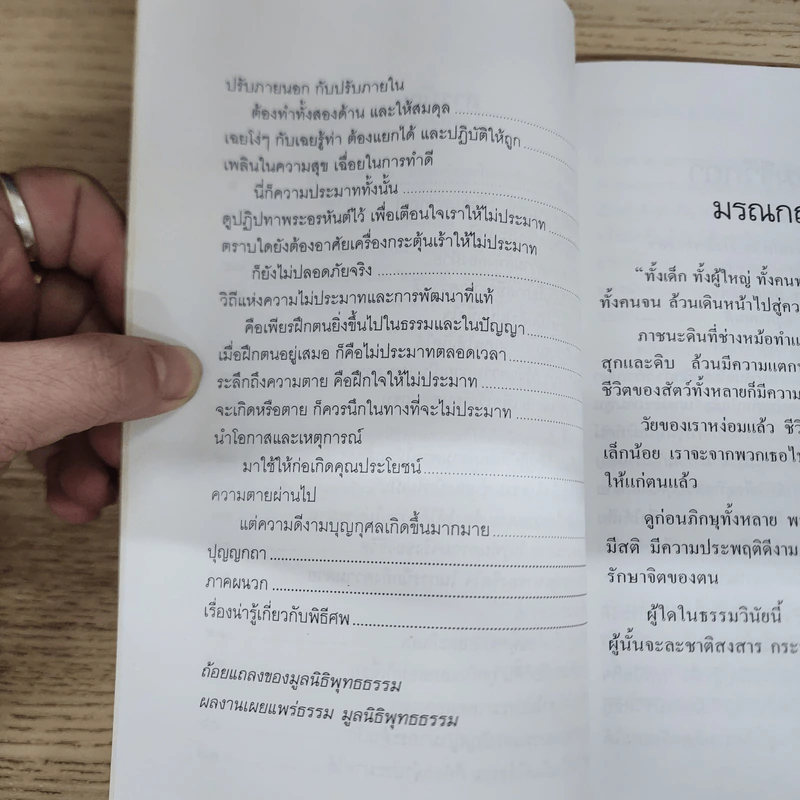 ปรับภายนอก กับปรับภายใน
ต้องทำทั้งสองด้าน และให้สมดุล
เฉยโง่ๆ กับเฉยรู้ท่า ต้องแยกได้ และปฏิบัติให้ถูก
เพลินในความสุข เฉื่อยในการทำดี
นี่ก็ความประมาททั้งนั้น
ดูปฏิปทาพระอรหันต์ไว้ เพื่อเตือนใจเราให้ไม่ประมาท
ตราบใดยังต้องอาศัยเครื่องกระตุ้นเร้าให้ไม่ประมาท
ก็ยังไม่ปลอดภัยจริง
วิถีแห่งความไม่ประมาทและการพัฒนาที่แท้
คือเพียรฝึกตนยิ่งขึ้นไปในธรรมและในปัญญา
เมื่อฝึกตนอยู่เสมอ ก็คือไม่ประมาทตลอดเวลา
ระลึกถึงความตาย คือฝึกใจให้ไม่ประมาท
จะเกิดหรือตาย ก็ควรนึกในทางที่จะไม่ประมาท
นำโอกาสและเหตุการณ์
มาใช้ให้ก่อเกิดคุณประโยชน์
ความตายผ่านไป
แต่ความดีงามบุญกุศลเกิดขึ้นมากมาย
ปุญญกถา
ภาคผนวก
เรื่องน่ารู้เกี่ยวกับพิธีศพ
ถ้อยแถลงของมูลนิธิพุทธธรรม
ผลงานเผยแพร่ธรรม มูลนิธิพุทธธรรม
มรณก
“ทั้งเด็ก ทั้งผู้ใหญ่ ทั้งคน
ทั้งคนจน ล้วนเดินหน้าไปสู่
ภาชนะดินที่ช่างหม้อทำ
สุกและดิบ ล้วนมีความแตก
ชีวิตของสัตว์ทั้งหลายก็มีความ
วัยของเราหง่อมแล้ว
เล็กน้อย เราจะจากพวกเธอไป
ให้แก่ตนแล้ว
ดูก่อนภิกษุทั้งหลาย
มีสติ มีความประพฤติดีงาม
รักษาจิตของตน
ผู้ใดในธรรมวินัยนี้
ผู้นั้นจะละชาติสงสาร